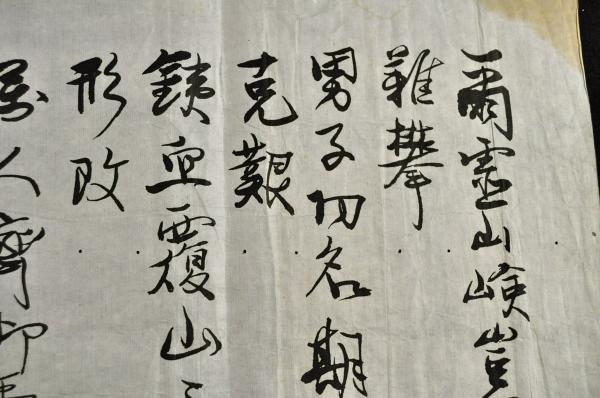 爾靈山嶮豈
難攀
男子功名期
克艱
鐵血覆山
形改
萬人齊仰